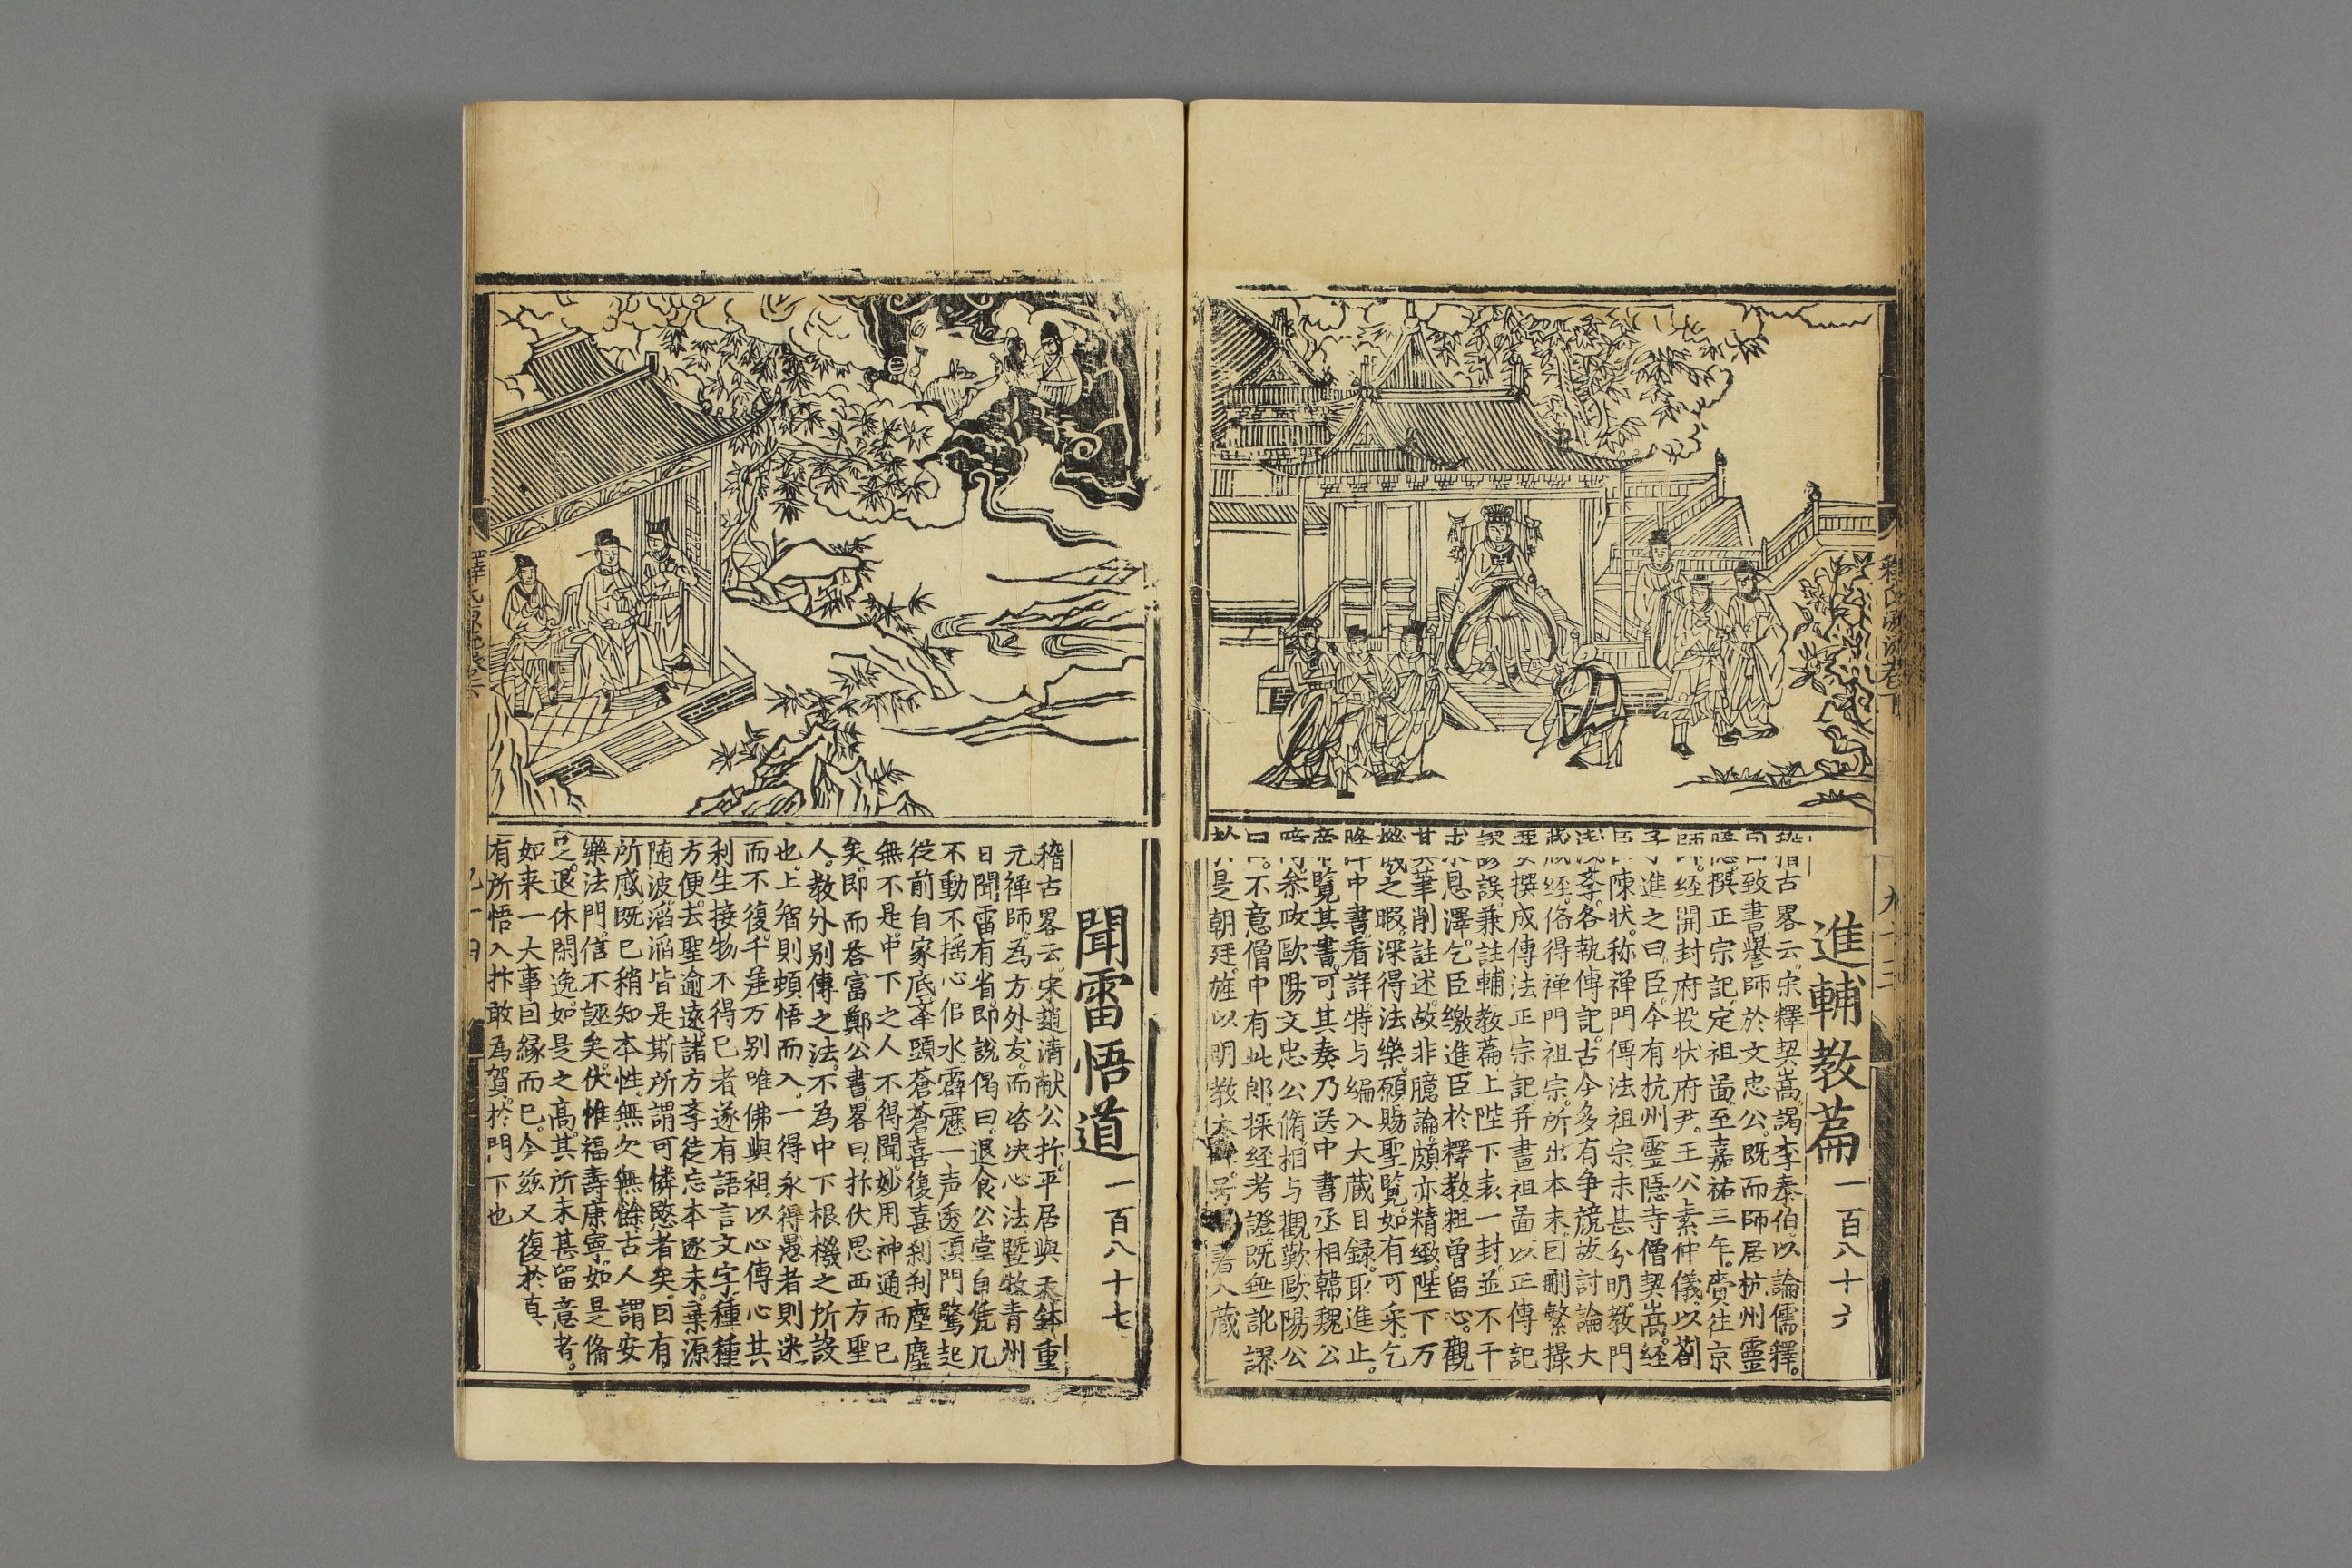 進輔教篇一百八十六
稽古畧云宋釋契嵩謁李泰伯以論儒釋
因致書譽師於文忠公既而師居杭州靈
隱撰正宗記定祖啚至嘉祐三年賫往京
師經開封府投状府尹王公素仲儀以劄
子進之曰臣今有杭州靈隱寺僧契嵩經
臣陳状称禅門傳法祖宗未甚分明教門
淺斈各執傳記古今多有争競故討論大
藏経俻得禅門祖宗所出本末因刪繁撮
要撰成傳法正宗記并畫祖啚以正傳記
謬誤兼註輔教篇上陛下表一封並不干
求恩澤乞臣繳進臣於釋教粗曽留心觀
其筆削註述故非臆論頗亦精緻陛下万
機之暇深得法樂願賜聖覧如有可采乞
降中書看詳特与編入大蔵目録取進止
帝覧其書可其奏乃送中書丞相韓魏公
暗叅政歐陽文忠公脩相与觀歎歐陽公
曰不意僧中有此郎採经考證既無訛謬
於是朝廷旌以明教大師号書入蔵
聞雷悟道一百八十七
稽古畧云宋趙清献公抃平居與天鉢重
元禅師為方外友而咨决心法曁牧青州
日聞雷有省即說偈曰退食公堂自凭几
不動不揺心佀水霹靂一声透頂門驚起
従前自家底舉頭蒼蒼喜復喜刹刹塵塵
無不是中下之人不得聞妙用神通而已
矣即而答富鄭公書畧曰抃伏思西方聖
人教外别傳之法不為中下根機之所設
也上智則頓悟而入一得永得愚者則迷
而不復千差万别唯佛與祖以心傳心其
利生接物不得已者遂有語言文字種種
方便去聖逾遠諸方斈徒忘本逐末棄源
随波滔滔皆是斯所謂可憐愍者矣因有
所感既已稍知本性無欠無餘古人謂安
樂法門信不誣矣伏惟福壽康寧如是俻
足退休閑逸如是之高其所未甚留意者
如来一大事因縁而已今玆又復於真
有所悟入抃敢為賀於門下也